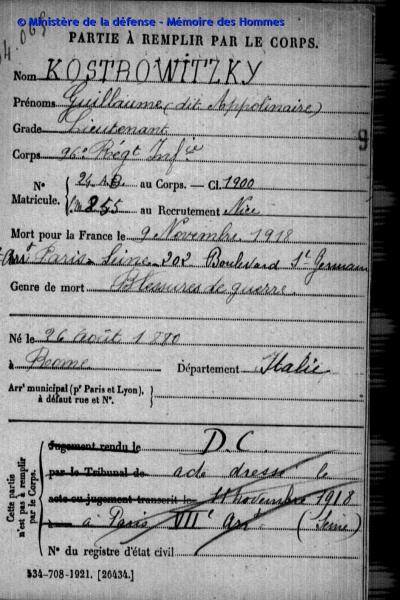 © Ministère de la défense - Mémoire des Hommes
PARTIE À REMPLIR PAR LE CORPS.
Nom KOSTROWITZKY
Prénoms Guillaume (dit Appolinaire)
Grade Lieutenant
Corps 96e Régt Infie
No Matricule. 24 A.D. au Corps. — Cl. 1900
au Recrutement Nice
Mort pour la France le 9 Novembre 1918
Arrt Paris - Seine 202 Boulevard St Germain
Genre de mort Blessures de guerre
Né le 26 Août 1880
à Rome Département Italie
Arrt municipal (pr Paris et Lyon),
à défaut rue et No.
Cette partie n'est pas à remplir par le Corps.
Jugement rendu le D.C
par le Tribunal de acte dressé le
acte ou jugement transcrit le 11 novembre 1918
à Paris VIIe Arrt (Seine)
No du registre d'état civil
534-708-1921. [26434.]